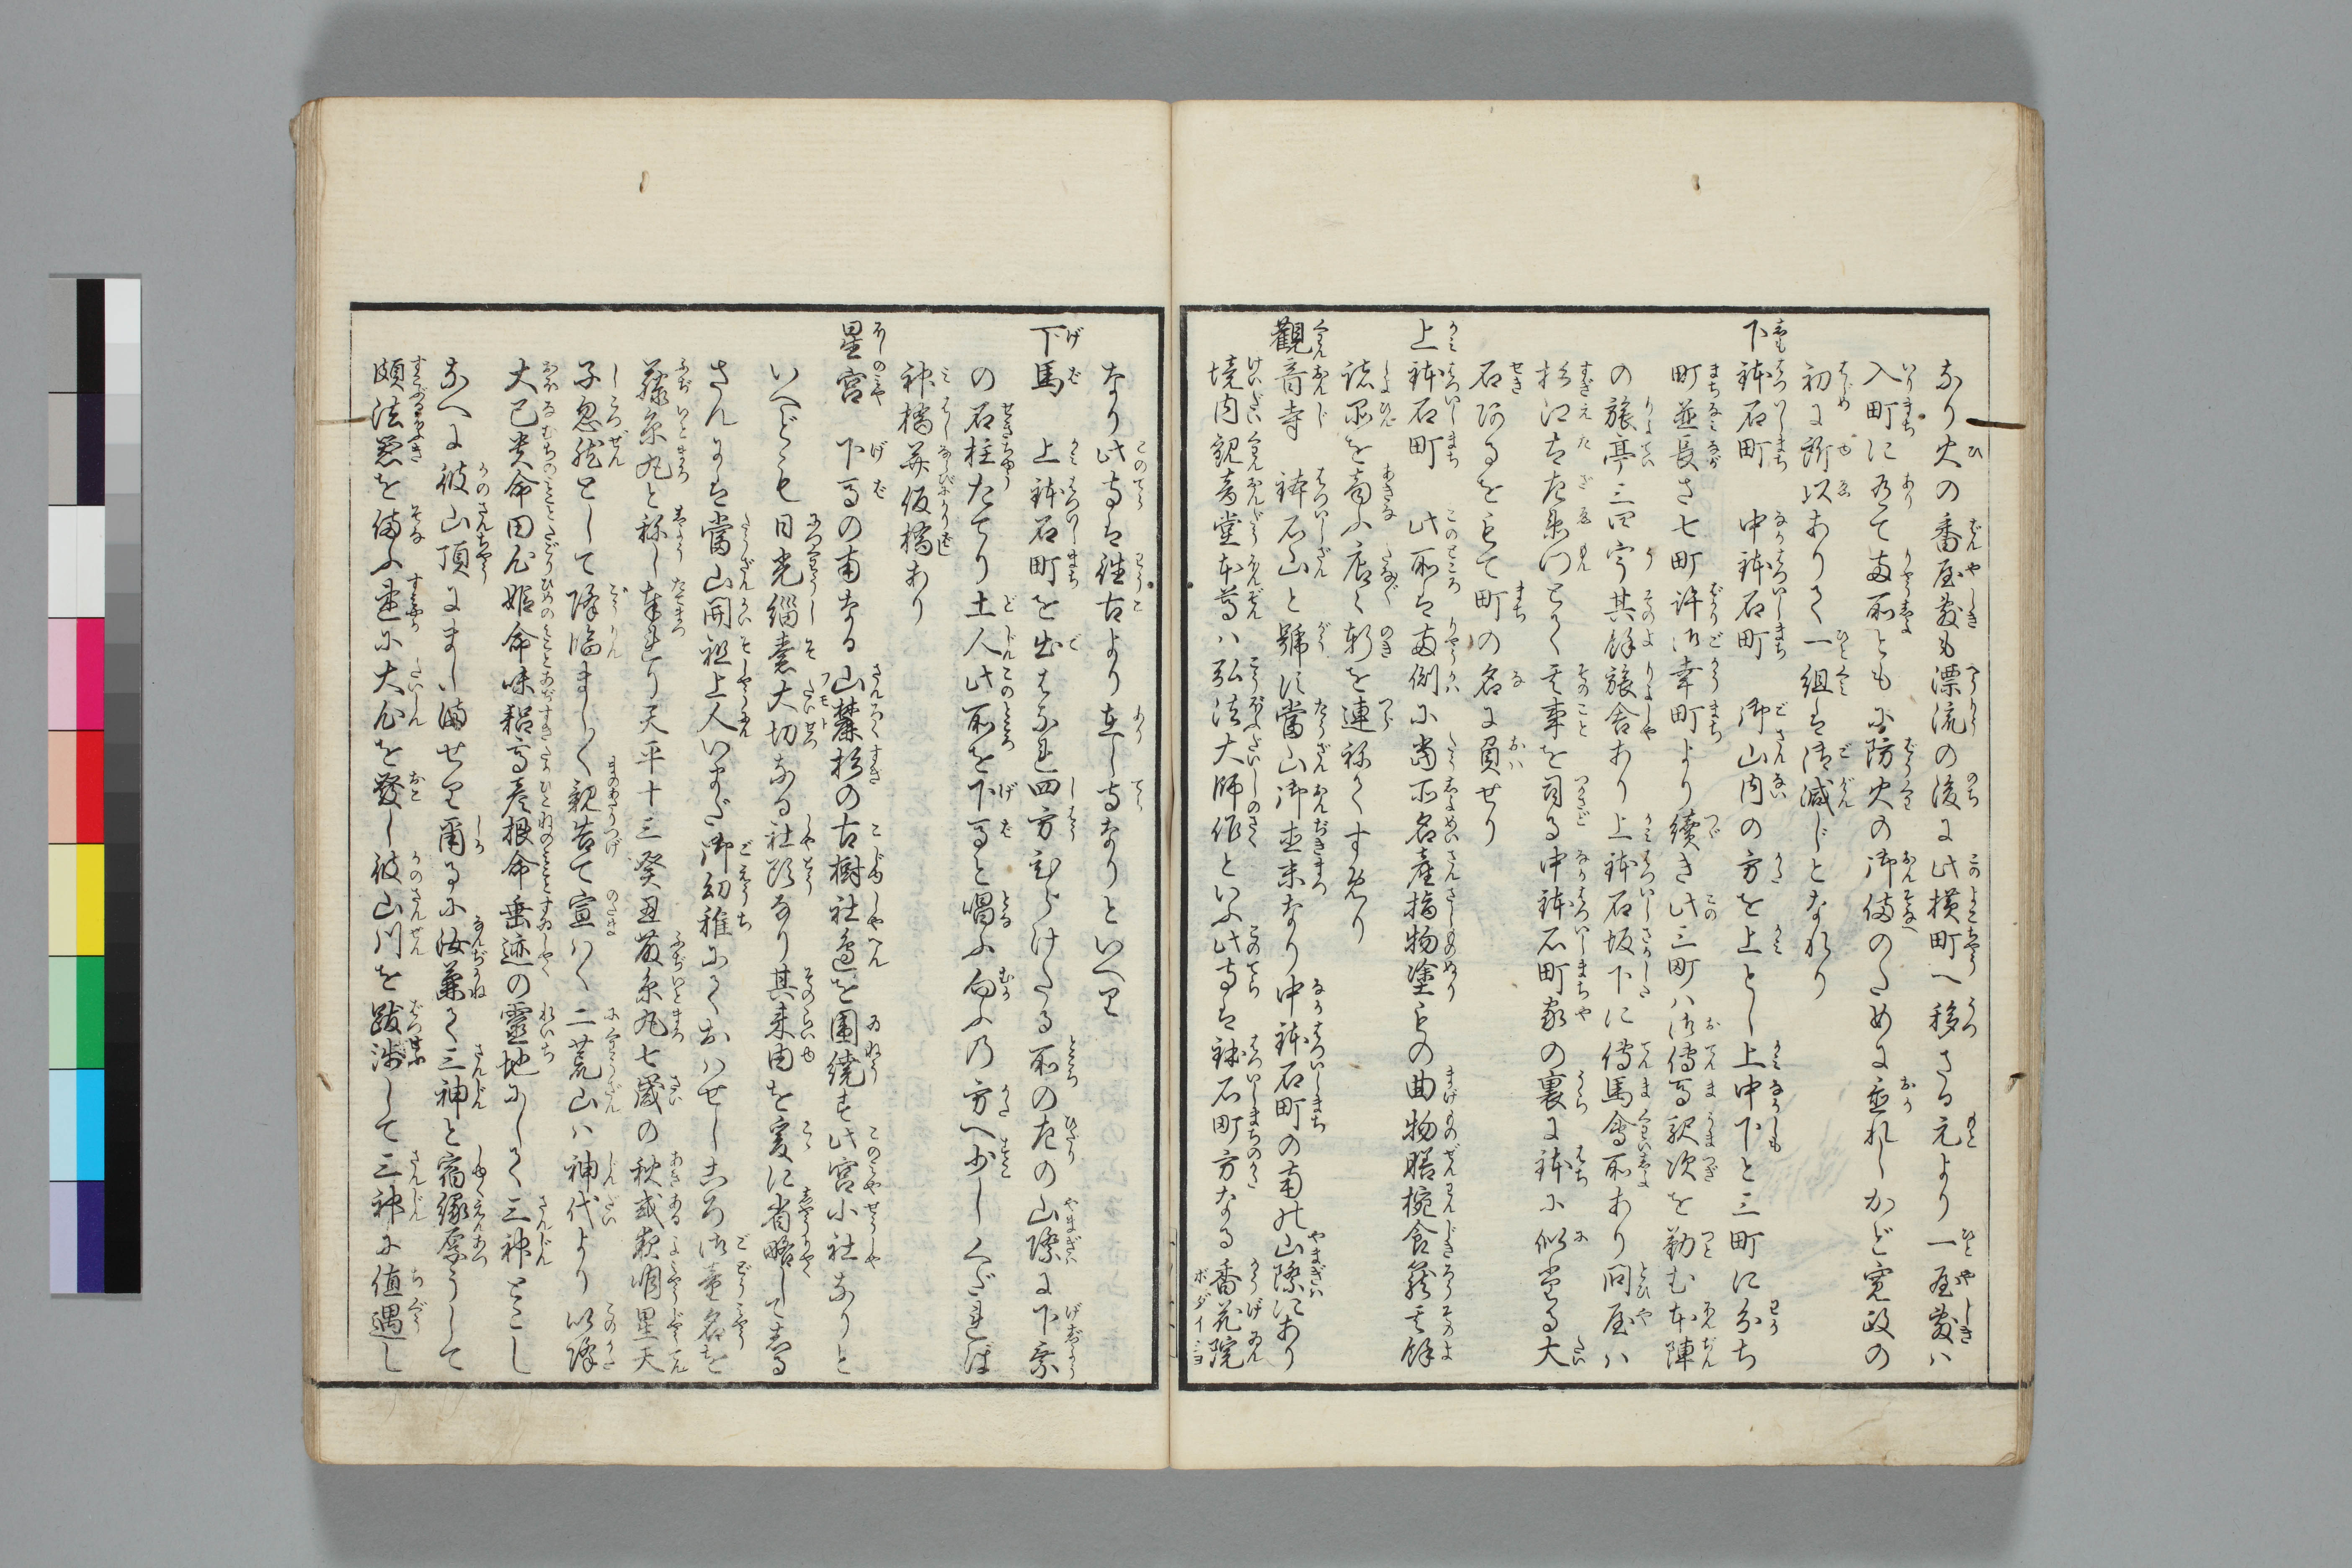 なり火の番屋敷も漂流の後に此横町へ移さる元より一屋敷ハ
入町に有て両所とも に防火の御備のために置れしかど寛政の
初に所以ありて一組は御減じとなれり
下鉢石町 中鉢石町 御山内の方を上とし上中下と三町に分ち
町並長さ七町許御幸町より續き此三町ハ御傳馬駅次を勤む本陣
の旅亭三四宇其餘旅舎あり上鉢石坂下に傳馬會所あり問屋ハ
杉江太左衛門とて其事を司る中鉢石町家の裏に鉢に似たる大
石あるをもて町の名に負せり
上鉢石町 此所は両側に當所名産指物塗もの曲物膳椀食籠其餘
諸品を商ふ店々軒を連ねてすめり
觀音寺 鉢石山と號す當山御直末なり中鉢石町の南の山際にあり
境内観音堂本尊ハ弘法大師作といふ此寺は鉢石町方なる香花院
ボダイシヨ
なり此寺は往古より在し寺なりといへり
下馬 上鉢石町を出はなれ四方ひらけたる所の左の山際に下乗
の石柱たてり土人此所を下馬と唱ふ向ふの方へ少しくだれば
神橋并仮橋あり
星宮 下馬の南なる山麓杉の古樹社邊を圍繞す此宮小社なりと
フモト
いへども日光緇素大切なる社頭なり其来由を爰に省略して志る
さんには當山開祖上人いまだ御幼稚にておハせしころ御童名を
藤糸丸と称し奉れり天平十三癸丑藤糸丸七歳の秋或夜明星天
子忽然として降臨ましく親告て宣ハく二荒山ハ神代より以降
大己貴命田心姫命味耜高彦根命垂迹の霊地にして三神とこし
なへに彼山頂にまし満せり爾るに汝兼て三神と宿縁厚うして
頗法器を備ふ速に大心を發し彼山川を跋渉して三神に値遇し